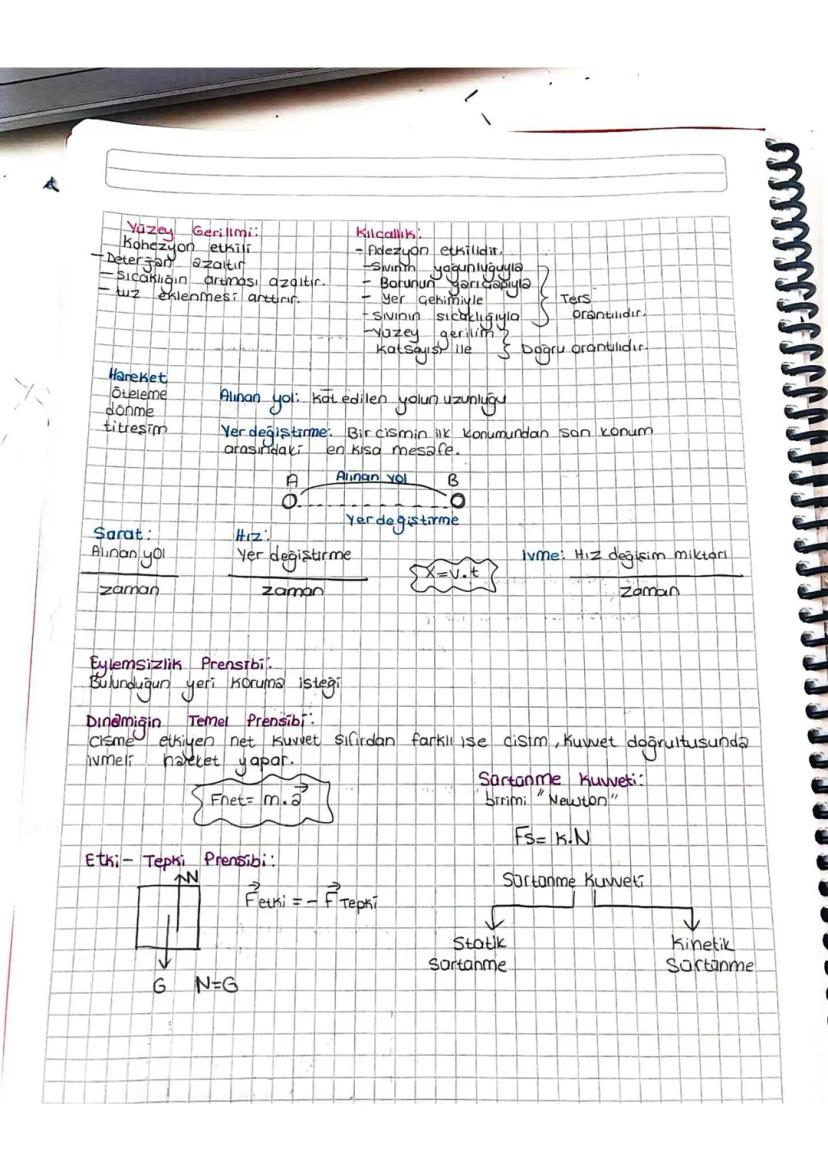 Yüzey Gerilimi:
Kohezyon etkili
- Deterjan azaltır
- sıcaklığın artması azaltır.
- tuz eklenmesi arttırır.
Kılcallık:
- Adezyon etkilidir.
- Sıvının yoğunluğuyla
- Borunun yarıçapıyla
- Yer çekimiyle
- sıvının sıcaklığıyla
Ters
orantılıdır.
- Yüzey gerilim
katsayısı ile
Doğru orantılıdır.
Hareket
öteleme
dönme
titreşim
Alınan yol: Kat edilen yolun uzunluğu
Yer değiştirme: Bir cismin ilk konumundan son konum
arasındaki en kısa mesafe.
A Alınan yol B
Yer değiştirme
Sürat:
Alınan yol
zaman
Hız:
Yer değiştirme
zaman
X=v.t
İvme: Hız değişim miktarı
zaman
Eylemsizlik Prensibi:
Bulunduğun yeri koruma isteği
Dinamiğin Temel Prensibi:
cisme etkiyen net kuvvet sıfırdan farklı ise cisim, kuvvet doğrultusunda
ivmeli hareket yapar.
Fnet = m.a
Sürtünme Kuvveti:
birimi "Newton"
Fs= k.N
Etki - Tepki Prensibi:
N
F etki = - F Tepki
G N=G
Sürtünme Kuvveti
Statik
Sürtünme
Kinetik
Sürtünme